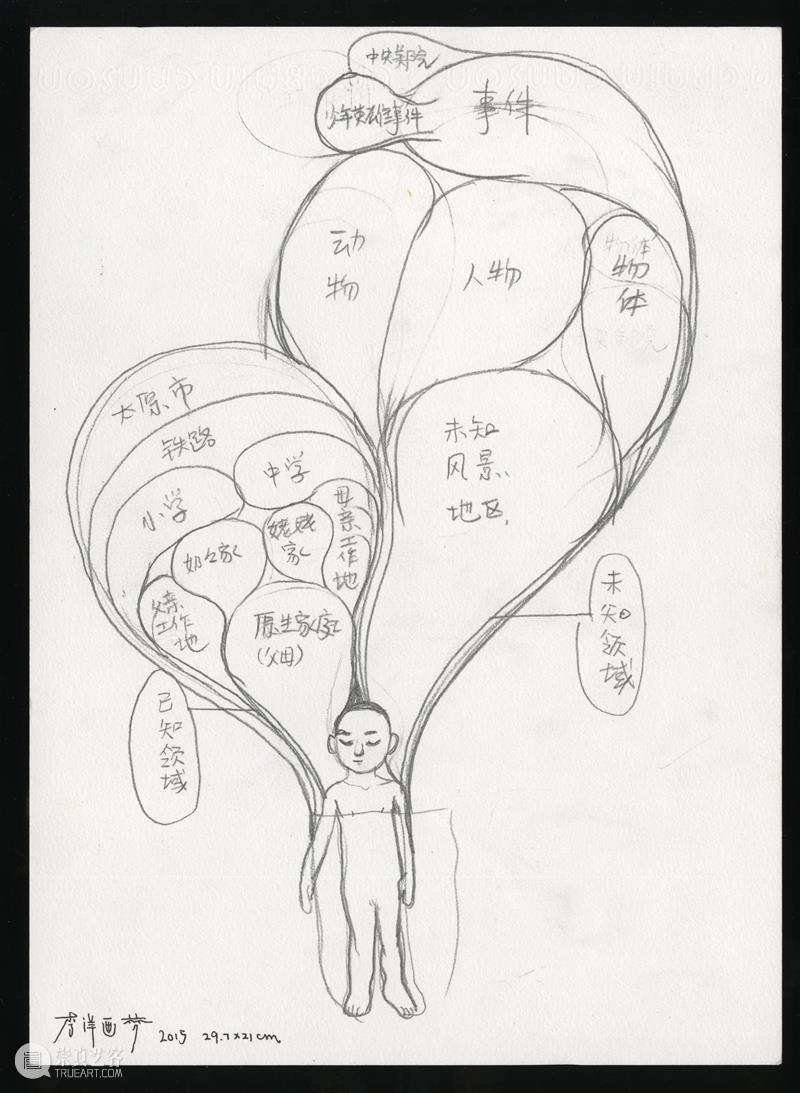 中央美院
少年英雄事件
事件
动
物
人物
物体
物
体
太原市
铁路
中学
小学
奶々家
姥姥
家
母亲工作地
父亲
工作
地
原生家庭
(父母)
未知
风景
地区
未知领域
已知领域
李洋画梦 2015 29.7×21cm
崇真艺客
TRUEART.COM